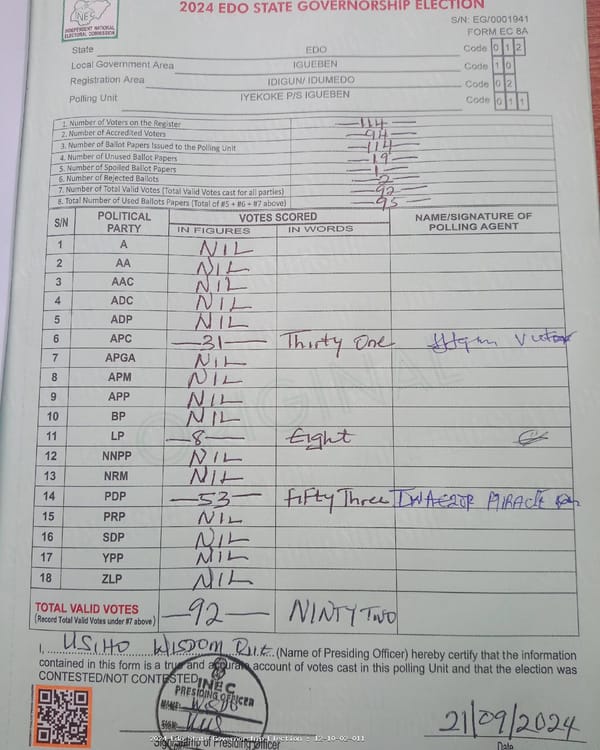 2024 EDO STATE GOVERNORSHIP ELECTION
INEC
INDEPENDENT NATIONAL
ELECTORAL COMMISSION
S/N: EG/0001941
FORM EC 8A
State EDO Code 0 1 2
Local Government Area IGUEBEN Code 1 0
Registration Area IDIGUN/ IDUMEDO Code 0 2
Polling Unit IYEKOKE P/S IGUEBEN Code 0 1 1
1. Number of Voters on the Register 114
2. Number of Accredited Voters 94
3. Number of Ballot Papers Issued to the Polling Unit 114
4. Number of Unused Ballot Papers 19
5. Number of Spoiled Ballot Papers 1
6. Number of Rejected Ballots 2
7. Number of Total Valid Votes (Total Valid Votes cast for all parties) 92
8. Total Number of Used Ballots Papers (Total of #5 + #6 + #7 above) 95
S/N POLITICAL PARTY VOTES SCORED NAME/SIGNATURE OF POLLING AGENT
IN FIGURES IN WORDS
1 A NIL
2 AA NIL
3 AAC NIL
4 ADC NIL
5 ADP NIL
6 APC 31 Thirty One
7 APGA NIL
8 APM NIL
9 APP NIL
10 BP NIL
11 LP 8 Eight
12 NNPP NIL
13 NRM NIL
14 PDP 53 Fifty Three MIRACLE
15 PRP NIL
16 SDP NIL
17 YPP NIL
18 ZLP NIL
TOTAL VALID VOTES 92 NINTY TWO
(Record Total Valid Votes under #7 above)
I, USIHO WISDOM (Name of Presiding Officer) hereby certify that the information
contained in this form is a true and accurate account of votes cast in this polling Unit and that the election was
CONTESTED/NOT CONTESTED
INEC
PRESIDING OFFICER
NAME
SIGN
21/09/2024
Signature of Presiding Officer Date
2024 Edo State Governorship Election - 12-10-02-011
ORIGINAL